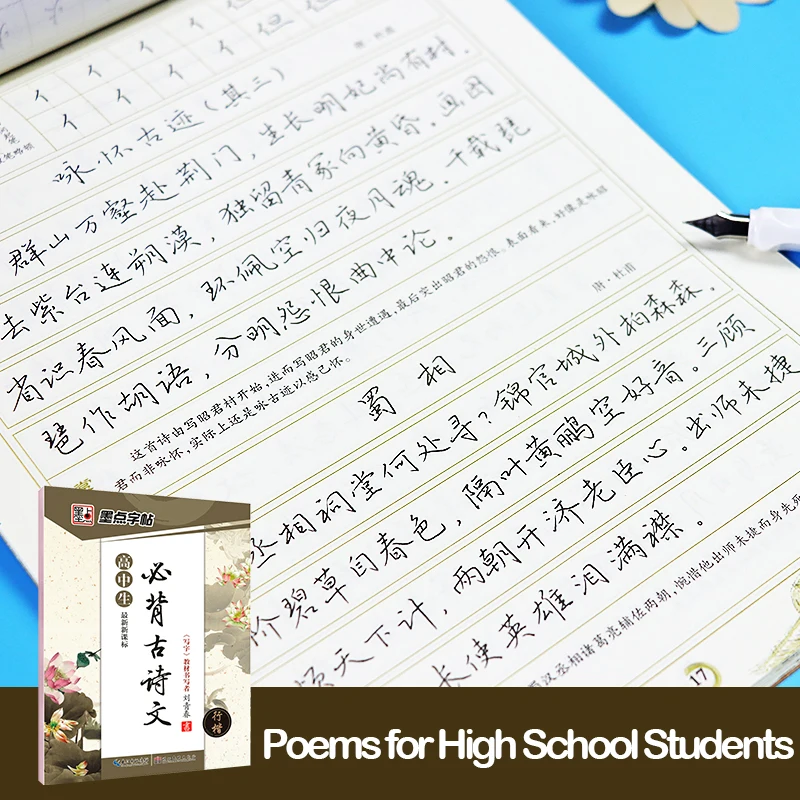 亻 亻 亻 亻 但 但
亻 亻 亻 亻
咏怀古迹(其三)
群山万壑赴荆门,生长明妃尚有村。
去紫台连朔漠,独留青冢向黄昏。画图
省识春风面,环佩空归夜月魂。千载琵
琶作胡语,分明怨恨曲中论。
这首诗由写昭君村开始,进而写昭君的身世遭遇,最后突出昭君的怨恨。表面看来,好像是咏昭
君而非咏怀,实际上还是咏古迹以感己怀。
唐·杜甫
蜀相
丞相祠堂何处寻?锦官城外柏森森。
阶碧草自春色,隔叶黄鹂空好音。三顾
烦天下计,两朝开济老臣心。出师未捷
长使英雄泪满襟。
汉丞相诸葛亮辅佐两朝,惋惜他出师未捷而身先死
17
墨点字帖
高中生
最新新课标
必背古诗文
《写字》教材书写者 刘青春 书
行楷
Poems for High School Students